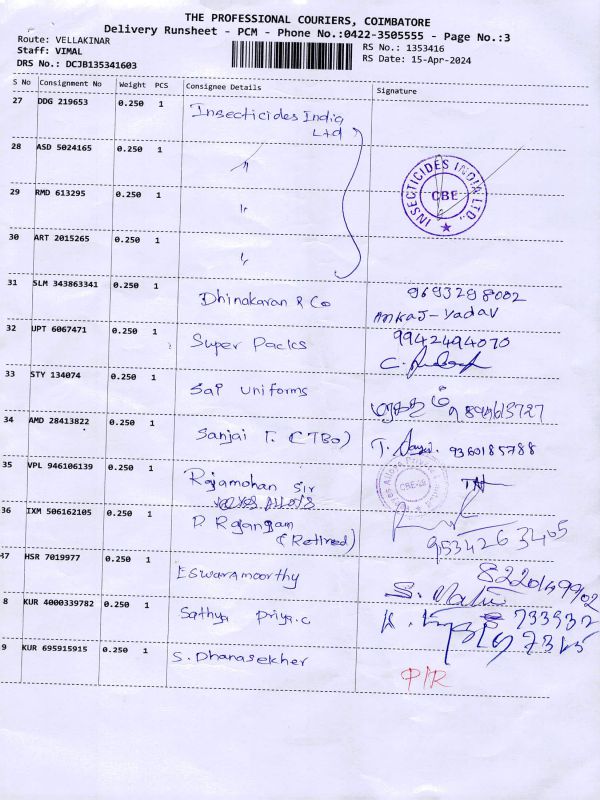 THE PROFESSIONAL COURIERS, COIMBATORE
Delivery Runsheet - PCM - Phone No.:0422-3505555 - Page No.:3
Route: VELLAKINAR
RS No.: 1353416
Staff: VIMAL
RS Date: 15-Apr-2024
DRS No.: DCJB135341603
S No Consignment No Weight PCS Consignee Details Signature
27 DDG 219653 0.250 1 Insecticides India Ltd
28 ASD 5024165 0.250 1 "
INSECTICIDES INDIA LTD., CBE
29 RMD 613295 0.250 1 "
30 ART 2015265 0.250 1 "
31 SLM 343863341 0.250 1 Dhinakaran & Co 9693298002
ANKAJ-YADAV
32 UPT 6067471 0.250 1 Super Packs 9942494070
33 STY 134074 0.250 1 Sai Uniforms
34 AMD 28413822 0.250 1 Sanjai T. (TBO) 9360185788
35 VPL 946106139 0.250 1 Rajamohan Sir
36 IXM 506162105 0.250 1 P. Rgangam (Retired) 9534263405
37 HSR 7019977 0.250 1 Eswaramoorthy 8220149902
8 KUR 4000339782 0.250 1 Sathya Priya.c
9 KUR 695915915 0.250 1 S. Dhanasekher P/R